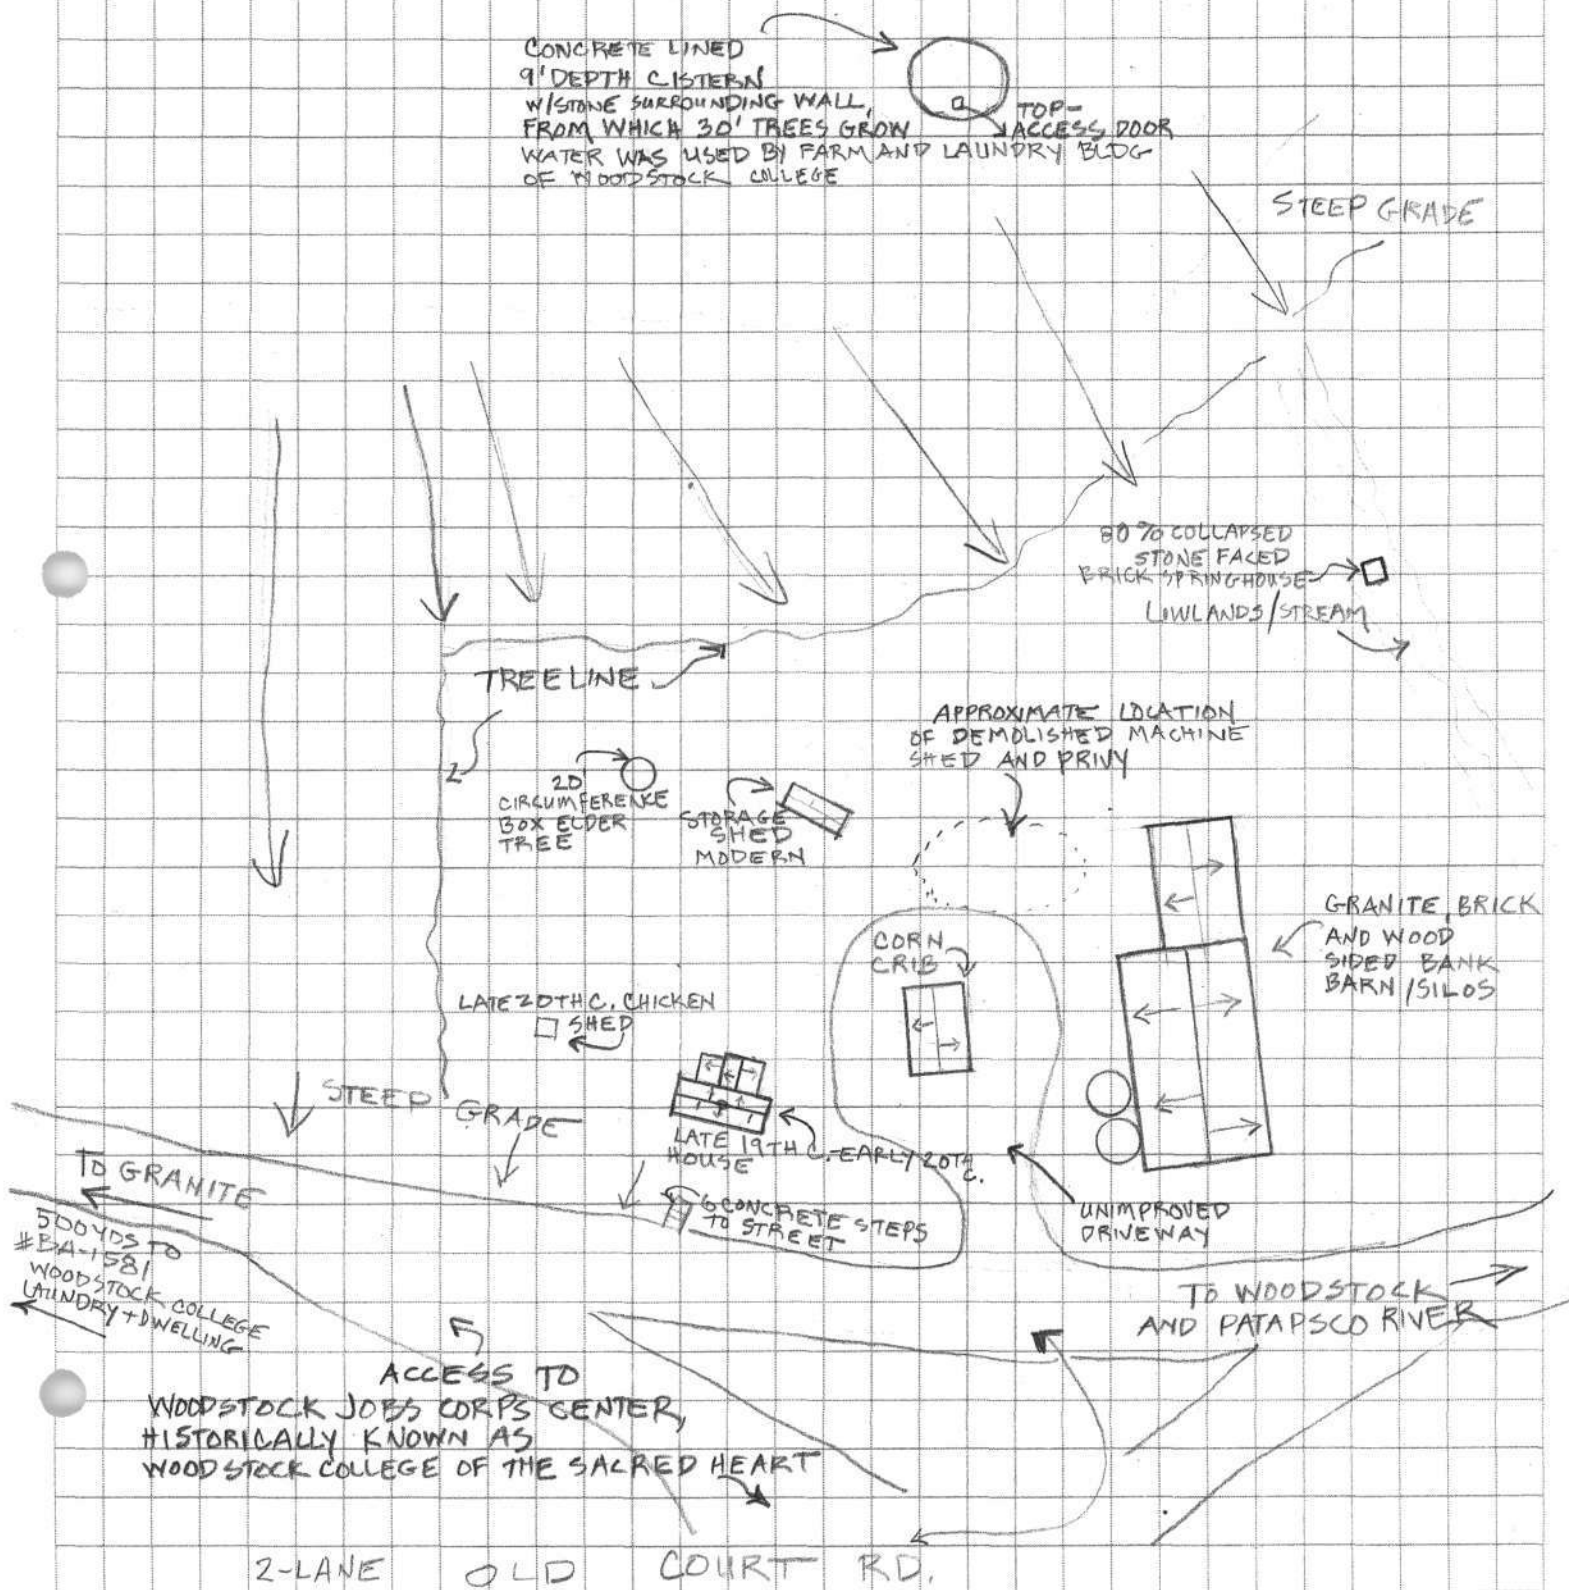 CONCRETE LINED
9' DEPTH CISTERN
W/STONE SURROUNDING WALL,
FROM WHICH 30' TREES GROW
WATER WAS USED BY FARM AND LAUNDRY BLDG
OF WOODSTOCK COLLEGE
TOP-
ACCESS DOOR
STEEP GRADE
80% COLLAPSED
STONE FACED
BRICK SPRINGHOUSE
LOWLANDS/STREAM
TREELINE
APPROXIMATE LOCATION
OF DEMOLISHED MACHINE
SHED AND PRIVY
20
CIRCUMFERENCE
BOX ELDER
TREE
STORAGE
SHED
MODERN
GRANITE, BRICK
AND WOOD
SIDED BANK
BARN/SILOS
CORN
CRIB
LATE 20TH C. CHICKEN
SHED
STEEP GRADE
LATE 19TH C.-EARLY 20TH C.
HOUSE
6 CONCRETE STEPS
TO STREET
UNIMPROVED
DRIVEWAY
TO GRANITE
500 YDS TO
#BA-1581
WOODSTOCK COLLEGE
LAUNDRY + DWELLING
TO WOODSTOCK
AND PATAPSCO RIVER
ACCESS TO
WOODSTOCK JOBS CORPS CENTER,
HISTORICALLY KNOWN AS
WOODSTOCK COLLEGE OF THE SACRED HEART
2-LANE OLD COURT RD.